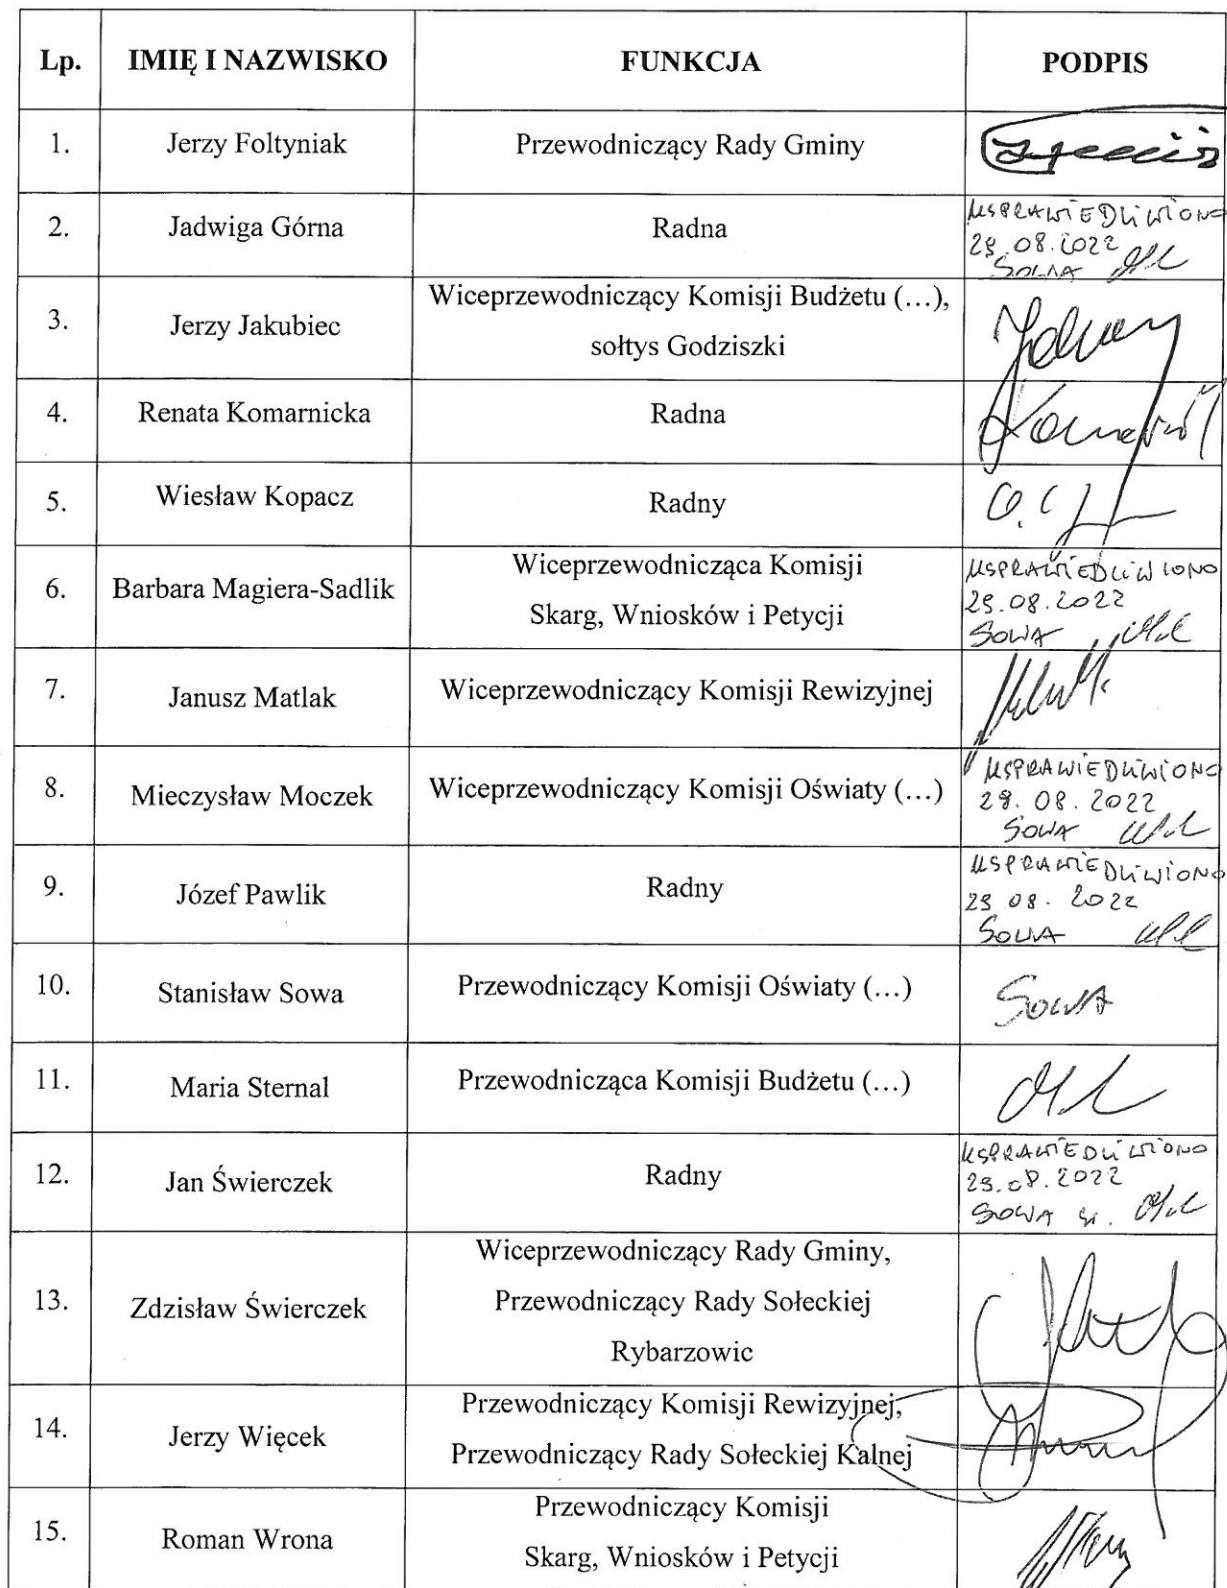 Lp. IMIĘ I NAZWISKO FUNKCJA PODPIS
1. Jerzy Foltyniak Przewodniczący Rady Gminy
2. Jadwiga Górna Radna USPRAWIEDLIWIONO
29.08.2022
SOWA
3. Jerzy Jakubiec Wiceprzewodniczący Komisji Budżetu (…),
sołtys Godziszki
4. Renata Komarnicka Radna
5. Wiesław Kopacz Radny
6. Barbara Magiera-Sadlik Wiceprzewodnicząca Komisji
Skarg, Wniosków i Petycji
USPRAWIEDLIWIONO
29.08.2022
SOWA
7. Janusz Matlak Wiceprzewodniczący Komisji Rewizyjnej
8. Mieczysław Moczek Wiceprzewodniczący Komisji Oświaty (…) USPRAWIEDLIWIONO
29.08.2022
SOWA
9. Józef Pawlik Radny USPRAWIEDLIWIONO
29 08. 2022
SOWA
10. Stanisław Sowa Przewodniczący Komisji Oświaty (…) SOWA
11. Maria Sternal Przewodnicząca Komisji Budżetu (…)
12. Jan Świerczek Radny USPRAWIEDLIWIONO
29.08.2022
SOWA
13. Zdzisław Świerczek Wiceprzewodniczący Rady Gminy,
Przewodniczący Rady Sołeckiej
Rybarzowic
14. Jerzy Więcek Przewodniczący Komisji Rewizyjnej,
Przewodniczący Rady Sołeckiej Kalnej
15. Roman Wrona Przewodniczący Komisji
Skarg, Wniosków i Petycji